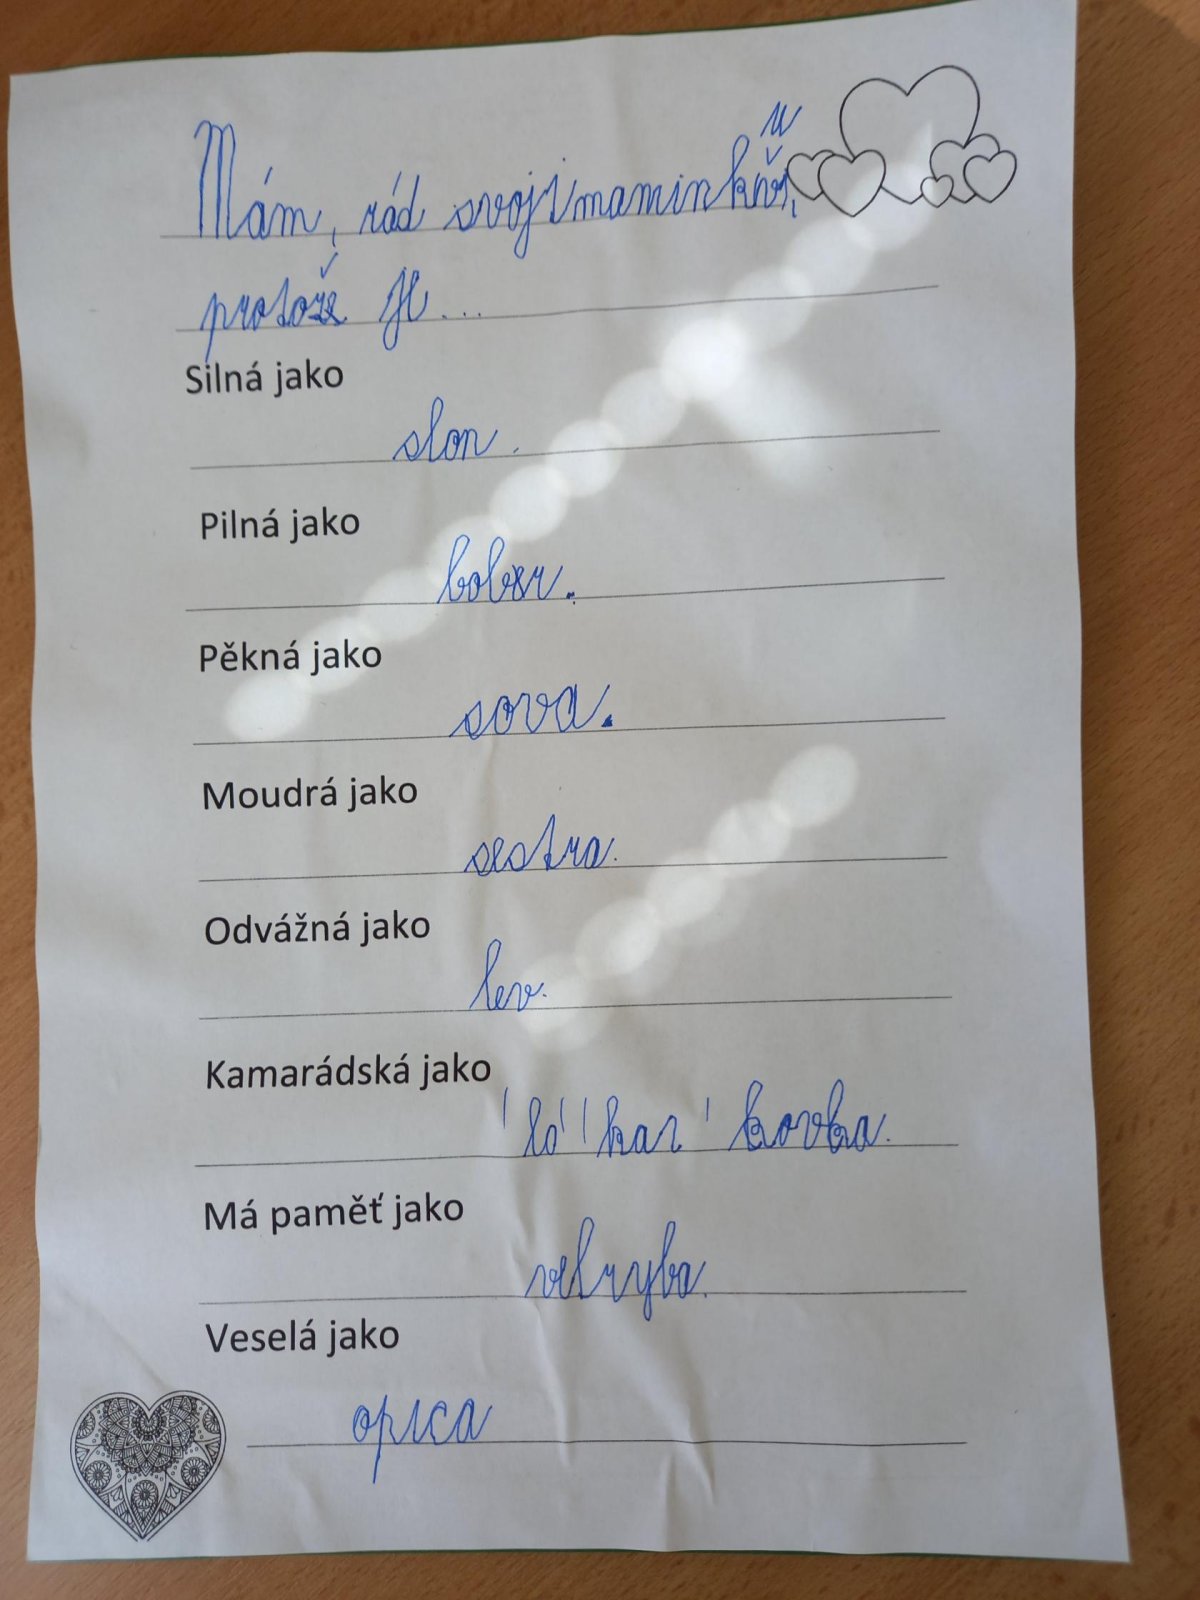 Mám, rád svoji maminku,
protože je ...
Silná jako
slon.
Pilná jako
bober.
Pěkná jako
sova.
Moudrá jako
sestra.
Odvážná jako
lev.
Kamarádská jako
kovka.
Má paměť jako
velryba.
Veselá jako
opica